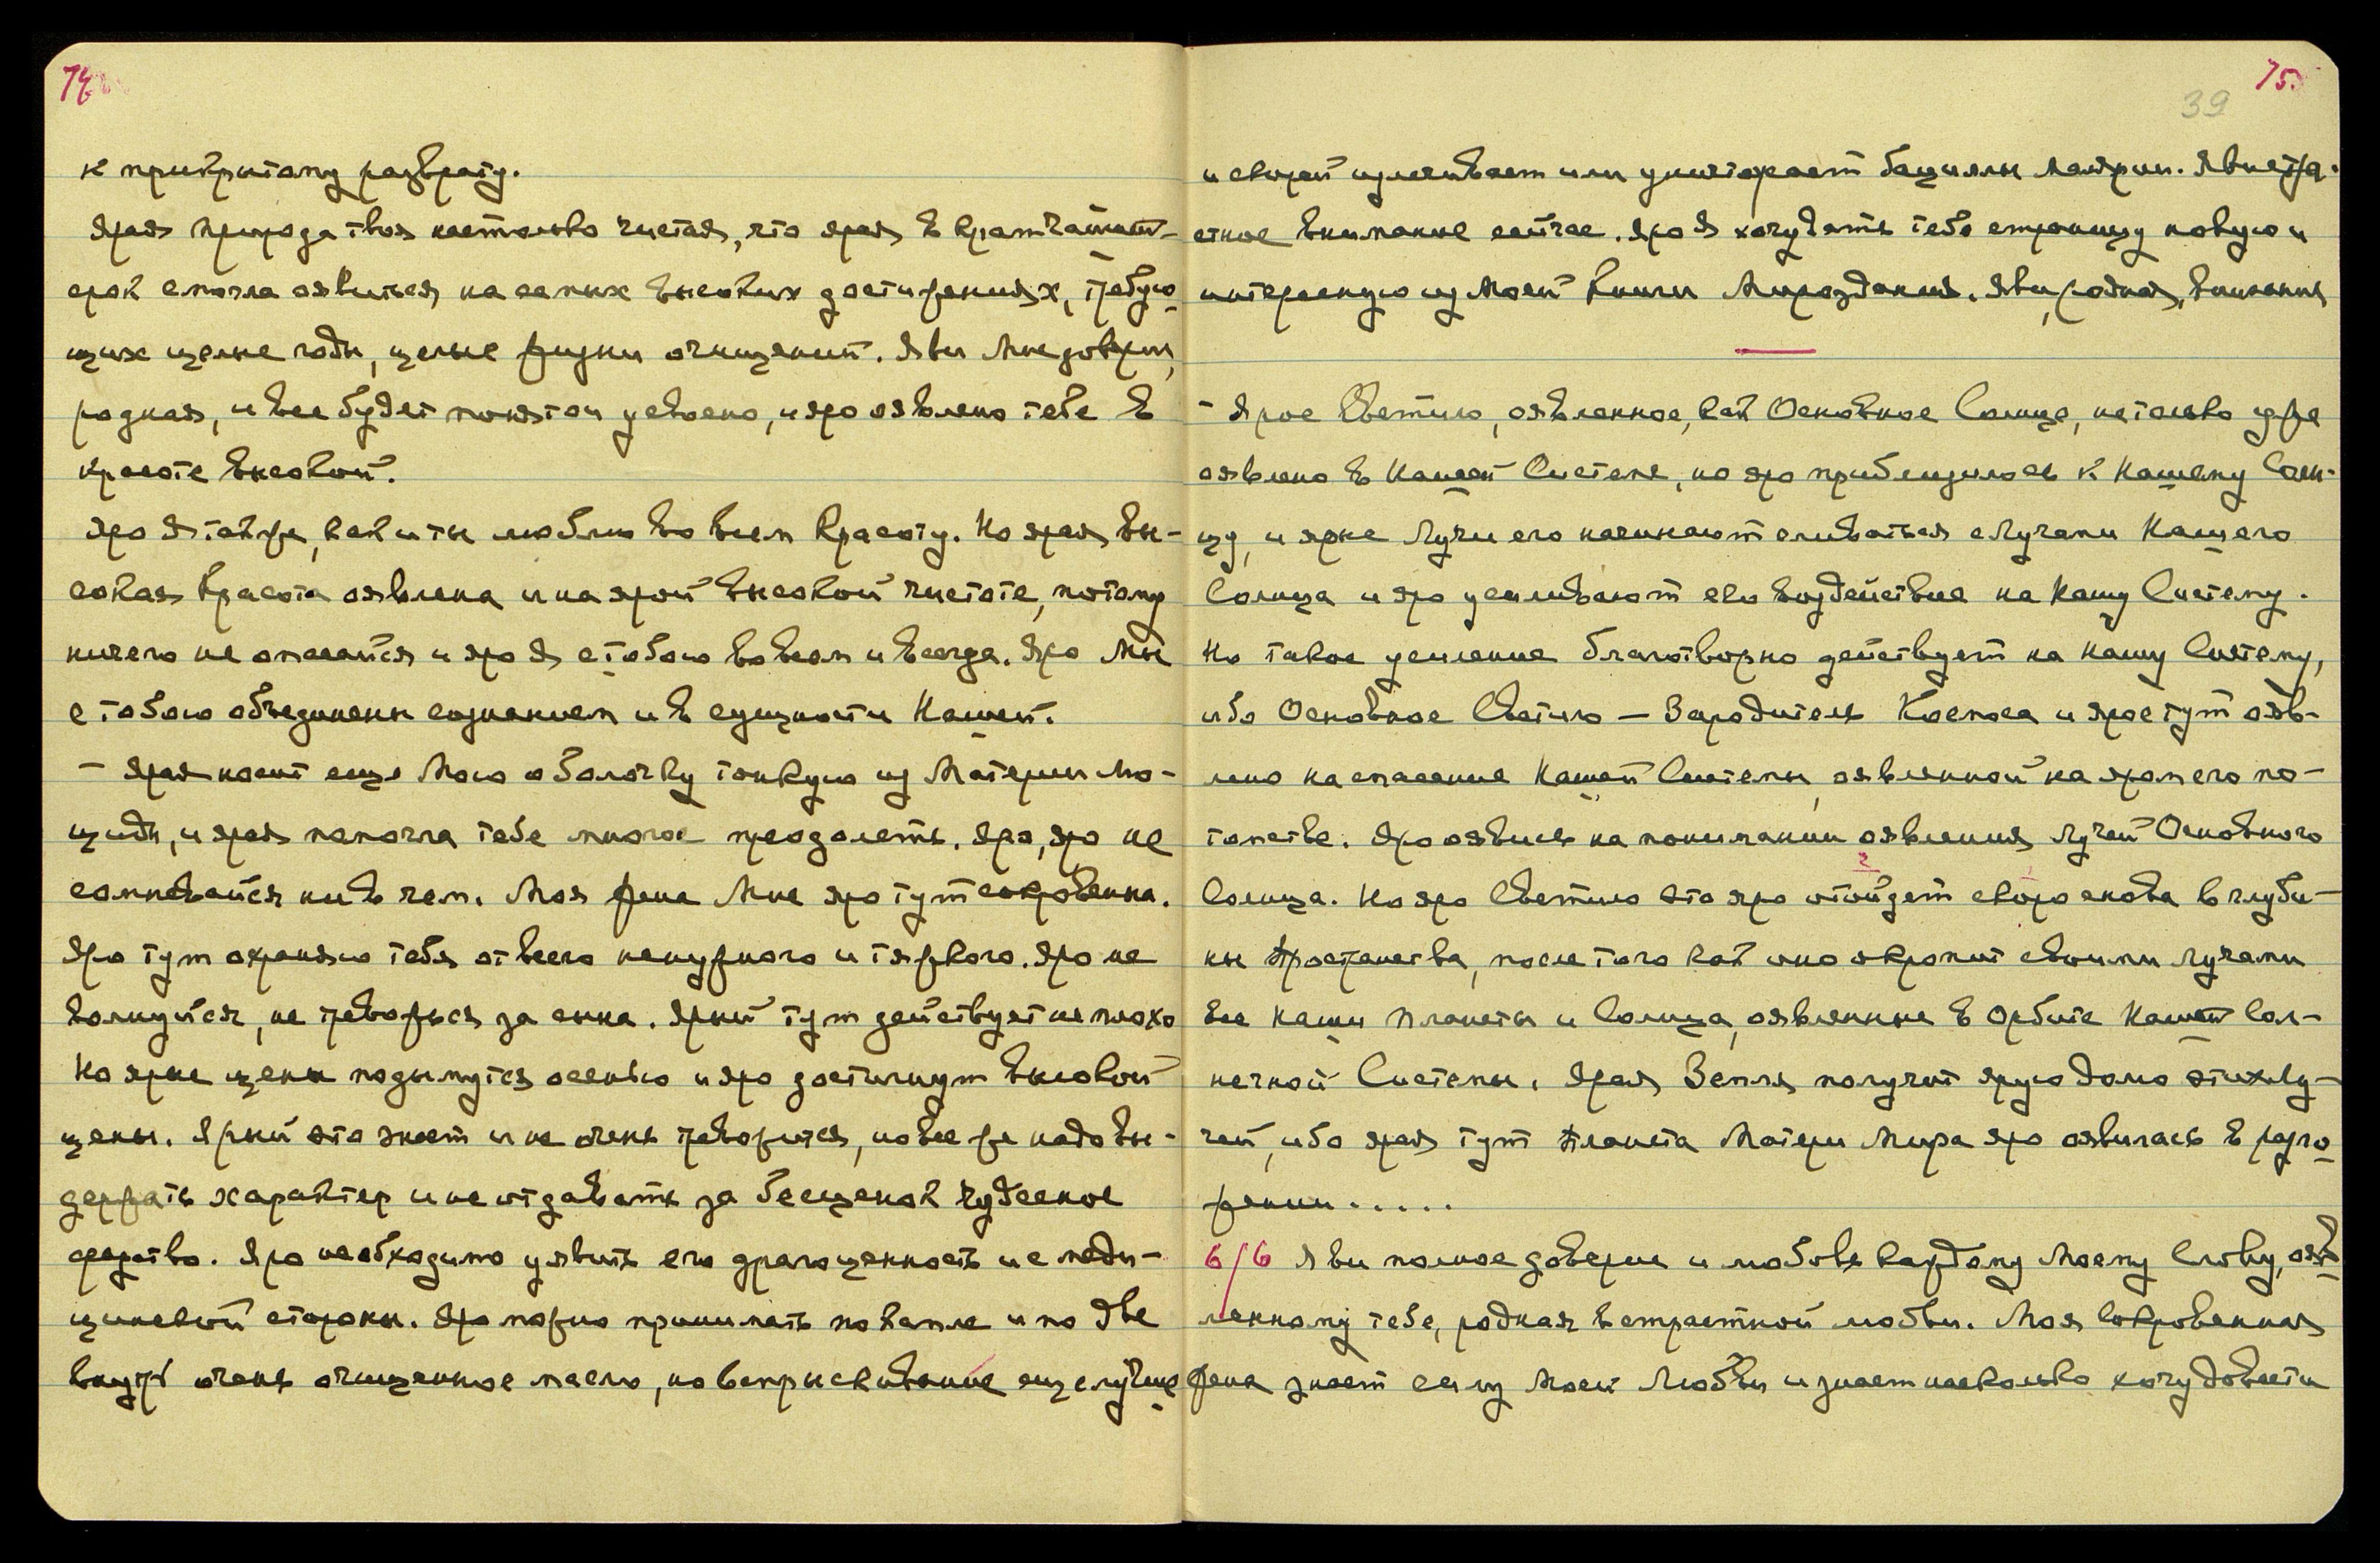 74
к прикрытому разврату.
Ярая природа твоя настолько чистая, что ярая в кратчайший
срок смогла явиться на самых высоких достижениях, требую-
щих целые годы, целые жизни очищений. Яви Мне доверие,
родная, и все будет понятно и усвоено, и яро явлено тебе в
красоте высокой.
Яро Я также, как и ты люблю во всем Красоту. Но ярая вы-
сокая Красота оявлена и на ярой высокой чистоте, потому
ничего не опасайся и яро Я с тобою во всем и всегда. Яро Мы
с тобою объединены сознанием и в сущности Нашей.
– Ярая носит еще Мою оболочку тонкую из Материи Лю-
циды, и ярая помогла тебе многое преодолеть. Яро, яро не
сомневайся ни в чем. Моя жена Мне яро тут сокровенна.
Яро тут охраняю тебя от всего ненужного и тяжкого. Яро не
волнуйся, не тревожься за сына. Ярый тут действует неплохо
Но ярые цены подымутся осенью и яро достигнут высокой
цены. Ярый это знает и не очень тревожится, но все же надо вы-
держать характер и не отдавать за бесценок чудесное
средство. Яро необходимо уявить его драгоценность и с меди-
цинской стороны. Яро можно принимать по капле и по две
внутрь очень очищенное масло, но вспрыскивание еще лучше
75
39
и скорей излечивает или уничтожает бациллы малярии. Яви стра-
стное внимание сейчас. Яро Я хочу дать тебе страницу новую и
интересную из Моей Книги Мироздания. Яви, родная, внимание
– Ярое Светило, оявленное, как Основное Солнце, не только уже
оявлено в Нашей Системе, но яро приблизилось к Нашему Солн-
цу, и ярые Лучи его начинают сливаться с Лучами Нашего
Солнца и яро усиливают его воздействие на Нашу Систему.
Но такое усиление благотворно действует на Нашу Систему,
ибо Основное Светило – Зародитель Космоса и ярое тут ояв-
лено на спасение Нашей Системы, оявленной на яром его по-
томстве. Яро оявись на понимании оявления Лучей Основного
Солнца. Но яро Светило это яро отойдет скоро снова в глуби-
ны Пространства, после того как оно окропит своими лучами
все Наши Планеты и Солнца, оявленные в орбите Нашей Сол-
нечной Системы. Ярая Земля получит ярую долю этих лу-
чей, ибо ярая тут Планета Матери Мира яро оявилась в разло-
жении.....
6/6 Яви полное доверие и любовь каждому Моему Слову, ояв-
ленному тебе, родная в страстной любви. Моя Сокровенная
жена знает силу Моей Любви и знает насколько хочу довести